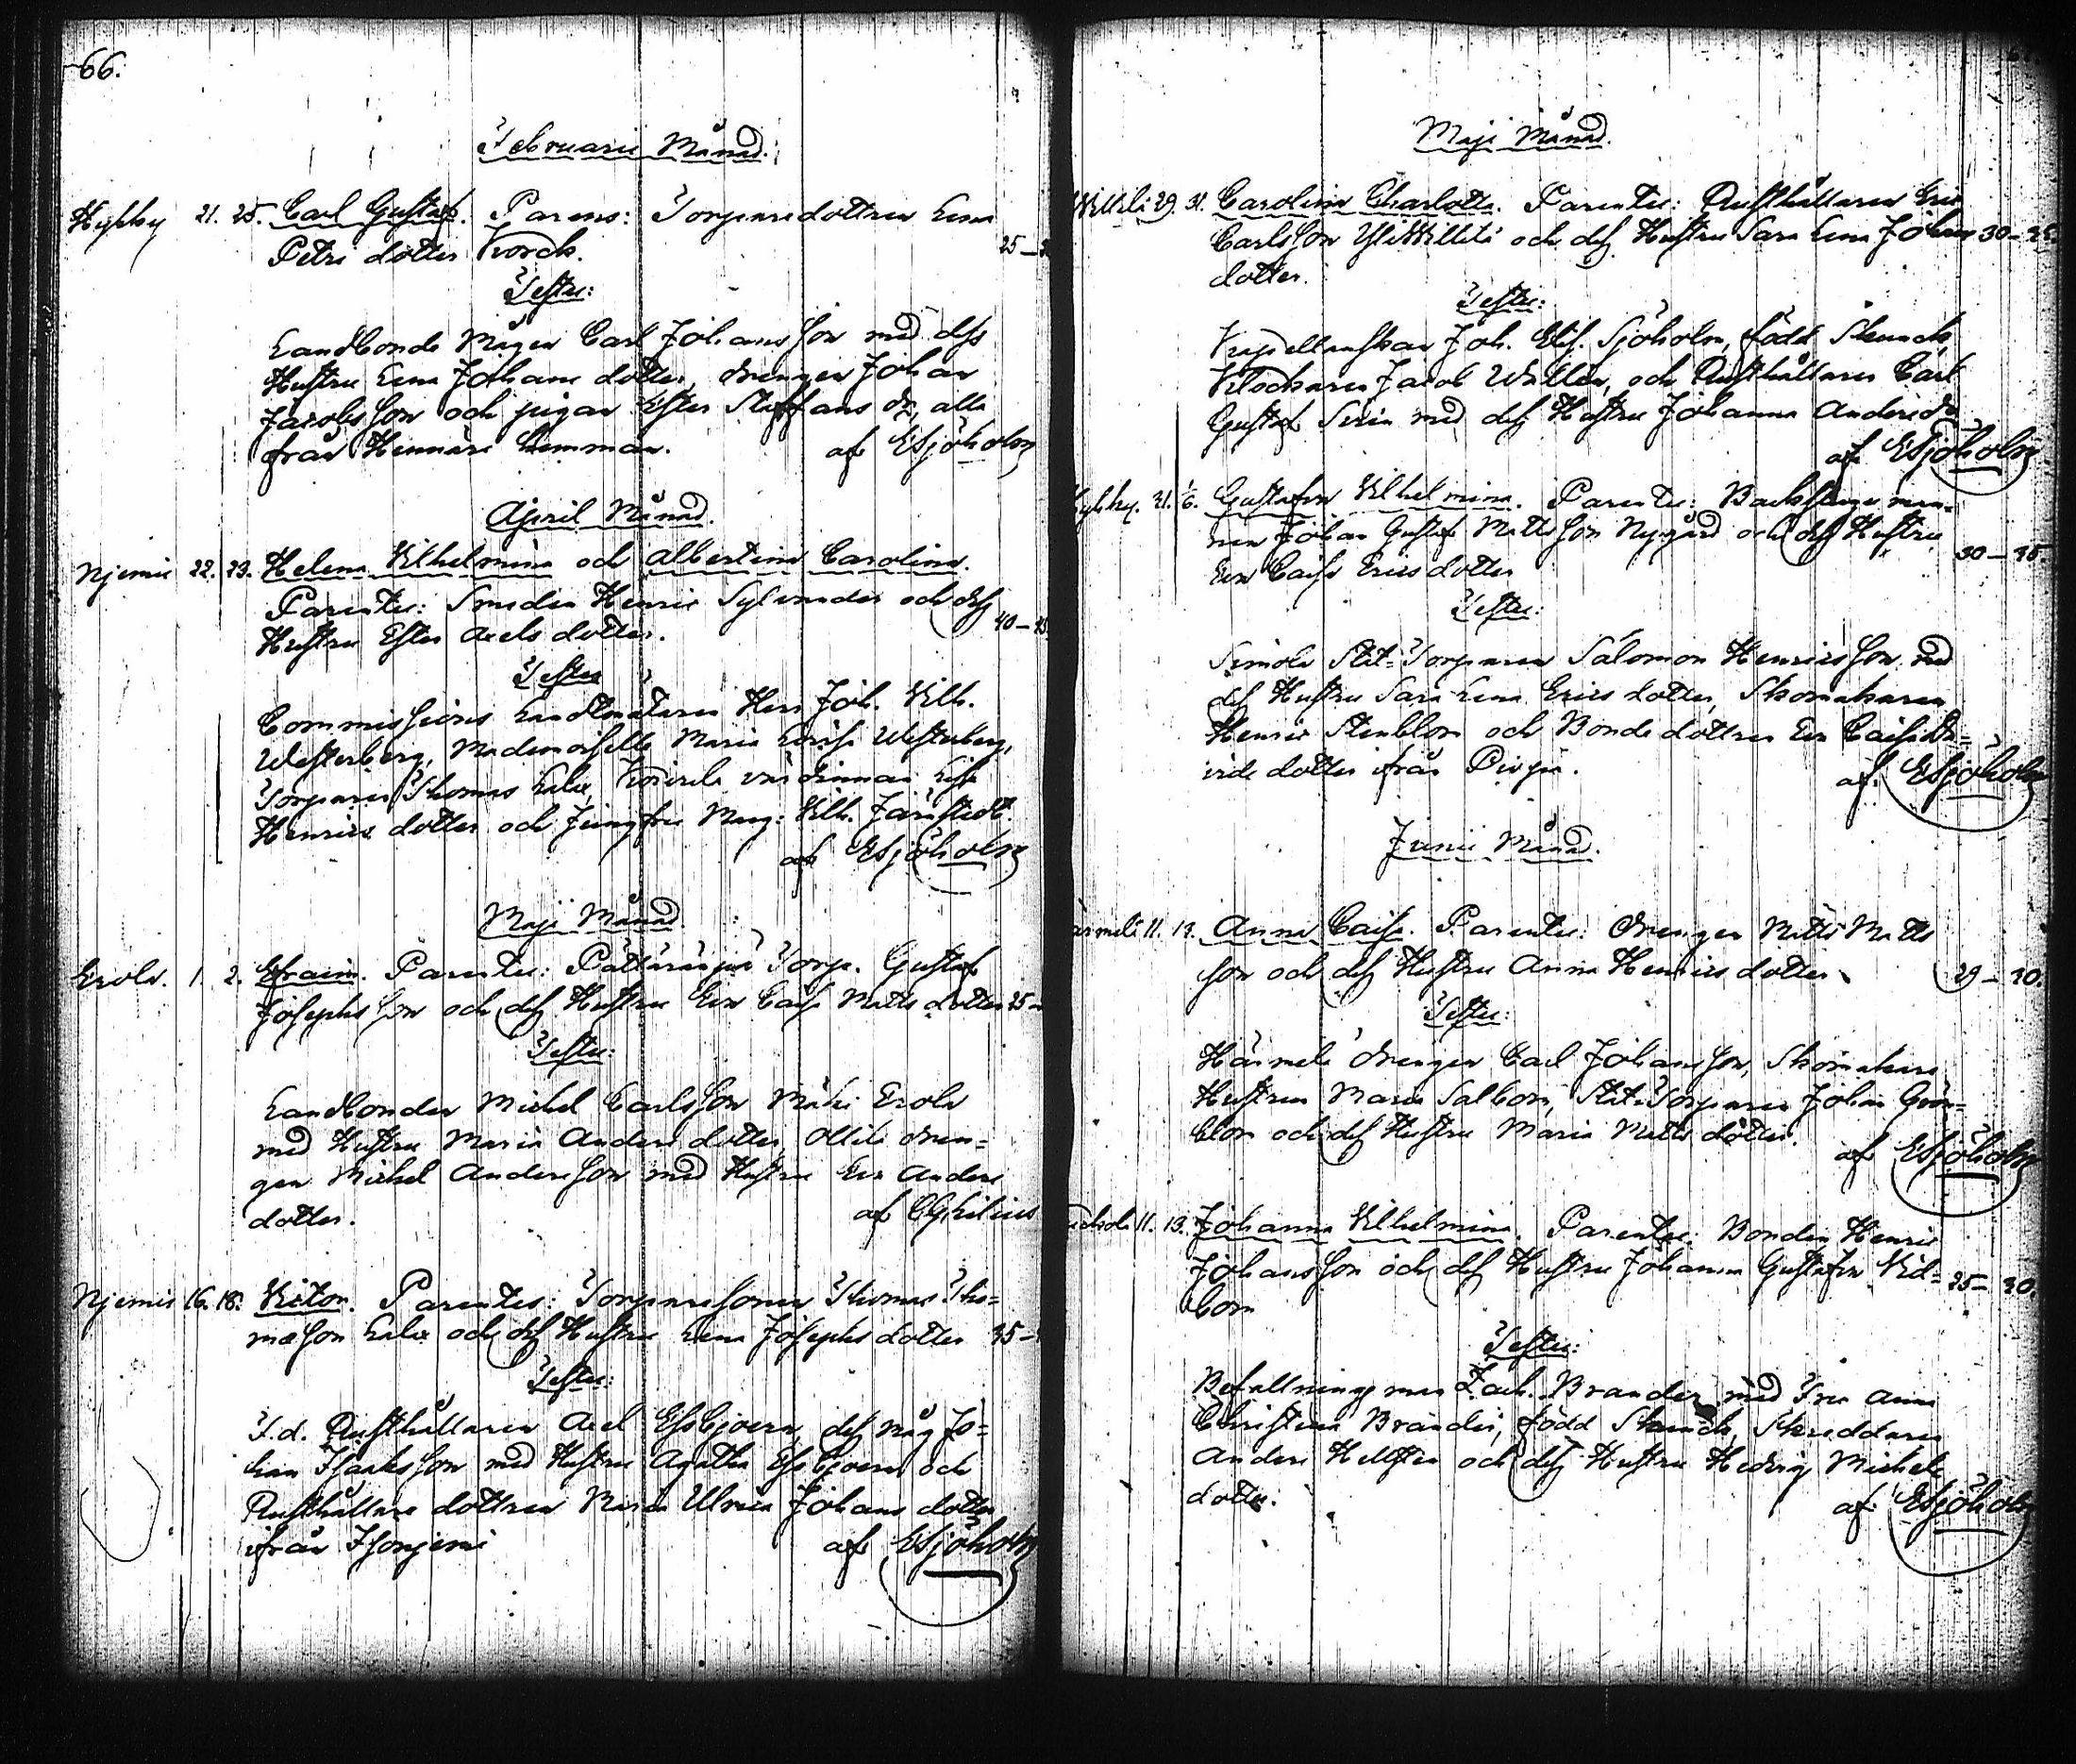 66.
Februarii Månad.
Hyhky 21. 25. Carl Gustaf. Parens: Torparedottren Lena
Petri dotter Korck. 25-
Testes:
Landbonde Mågen Carl Johansson med dess
Hustru Lena Johans dotter, drengen Johan
Jacobsson och pigan Ester Staffans dr, alla
från Hennäri hemman. af ESjöholm
April Månad.
Njemis 22. 23. Helena Vilhelmina och Albertina Carolina.
Parentes: Smeden Henric Sylvander och dess
Hustru Ester Axels dotter. 40-
Testes
Commissions Landtmätaren Herr Joh. Vilh.
Westerberg, Mademoiselle Maria Lovisa Westerberg,
Torparen Thomas värdinnan Lisa
Henrics dotter och Jungfru Marg: Vilh. Järnstedt.
af ESjöholm
Maji Månad
Erola. 1. 2. Efraim. Parentes: Torp. Gustaf
Josephsson och dess Hustru Eva Caisa Matts dotter 25-
Testes:
Landbonden Michel Carlsson Mäki Erola
med Hustru Maria Anders dotter, Ollila dren=
gen Michel Andersson med Hustru Eva Anders
dotter. af
Njemis 16. 18. Victor. Parentes: Torparesonen Thomas Tho=
masson och dess Hustru Lena Josephs dotter 35-
Testes:
F.d. Rusthållaren Axel Essbjoern, dess måg Jo=
han Isaksson med Hustru Agatha Essbjoern och
Rusthållare dottren Maria Ulrica Johans dotter
ifrån Isonjemi af ESjöholm
Maji Månad.
29. 31. Carolina Charlotta. Parentes: Rusthållaren Eric
Carlsson och dess Hustru Sara Lena Johans 30-35
dotter.
Testes:
Kapellanskan Joh. Elis. Sjöholm, född
Klockaren Jacob Wallen, och Rusthållaren Carl
Gustaf med dess Hustru Johanna Anders dr
af ESjöholm
Hyhky. 31. 1/6. Gustafva Vilhelmina. Parentes: Backstugu man=
nen Johan Gustaf Mattsson Nygård och dess Hustru
Eva Caisa Erics dotter 30-35
Testes:
Simola Stat=Torparen Salomon Henricsson med
dess Hustru Sara Lena Erics dotter, Skomakaren
Henric Stenblom och Bonde dottren Eva Caisa
dotter från af ESjöholm
Junii Månad.
11. 13. Anna Caisa. Parentes: Drengen Matts Matts
son och dess Hustru Anna Henrics dotter 29-30.
Testes:
Härmelä drengen Carl Johansson, Skomakare
Hustrun Maria Salbom, Stat=Torparen Johan Grön=
blom och dess Hustru Maria Matts dotter.
af ESjöholm
11. 13. Johanna Vilhelmina. Parentes: Bonden Henric
Johansson och dess Hustru Johanna Gustafva Vid=
bom 25-30.
Testes:
Befallnings man Zach. Brander med Fru Anna
Christina Brander, född Skreddaren
Anders Hellsten och dess Hustru Hedvig Michels
dotter. af ESjöholm